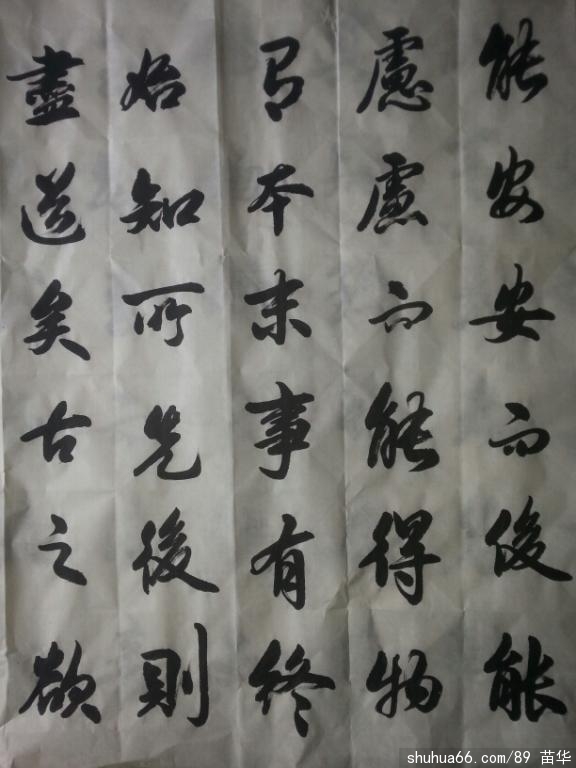 能安安而後能
慮慮而能得物
有本末事有終
始知所先後則
盡道矣古之欲
shuhua66.com/89 苗华